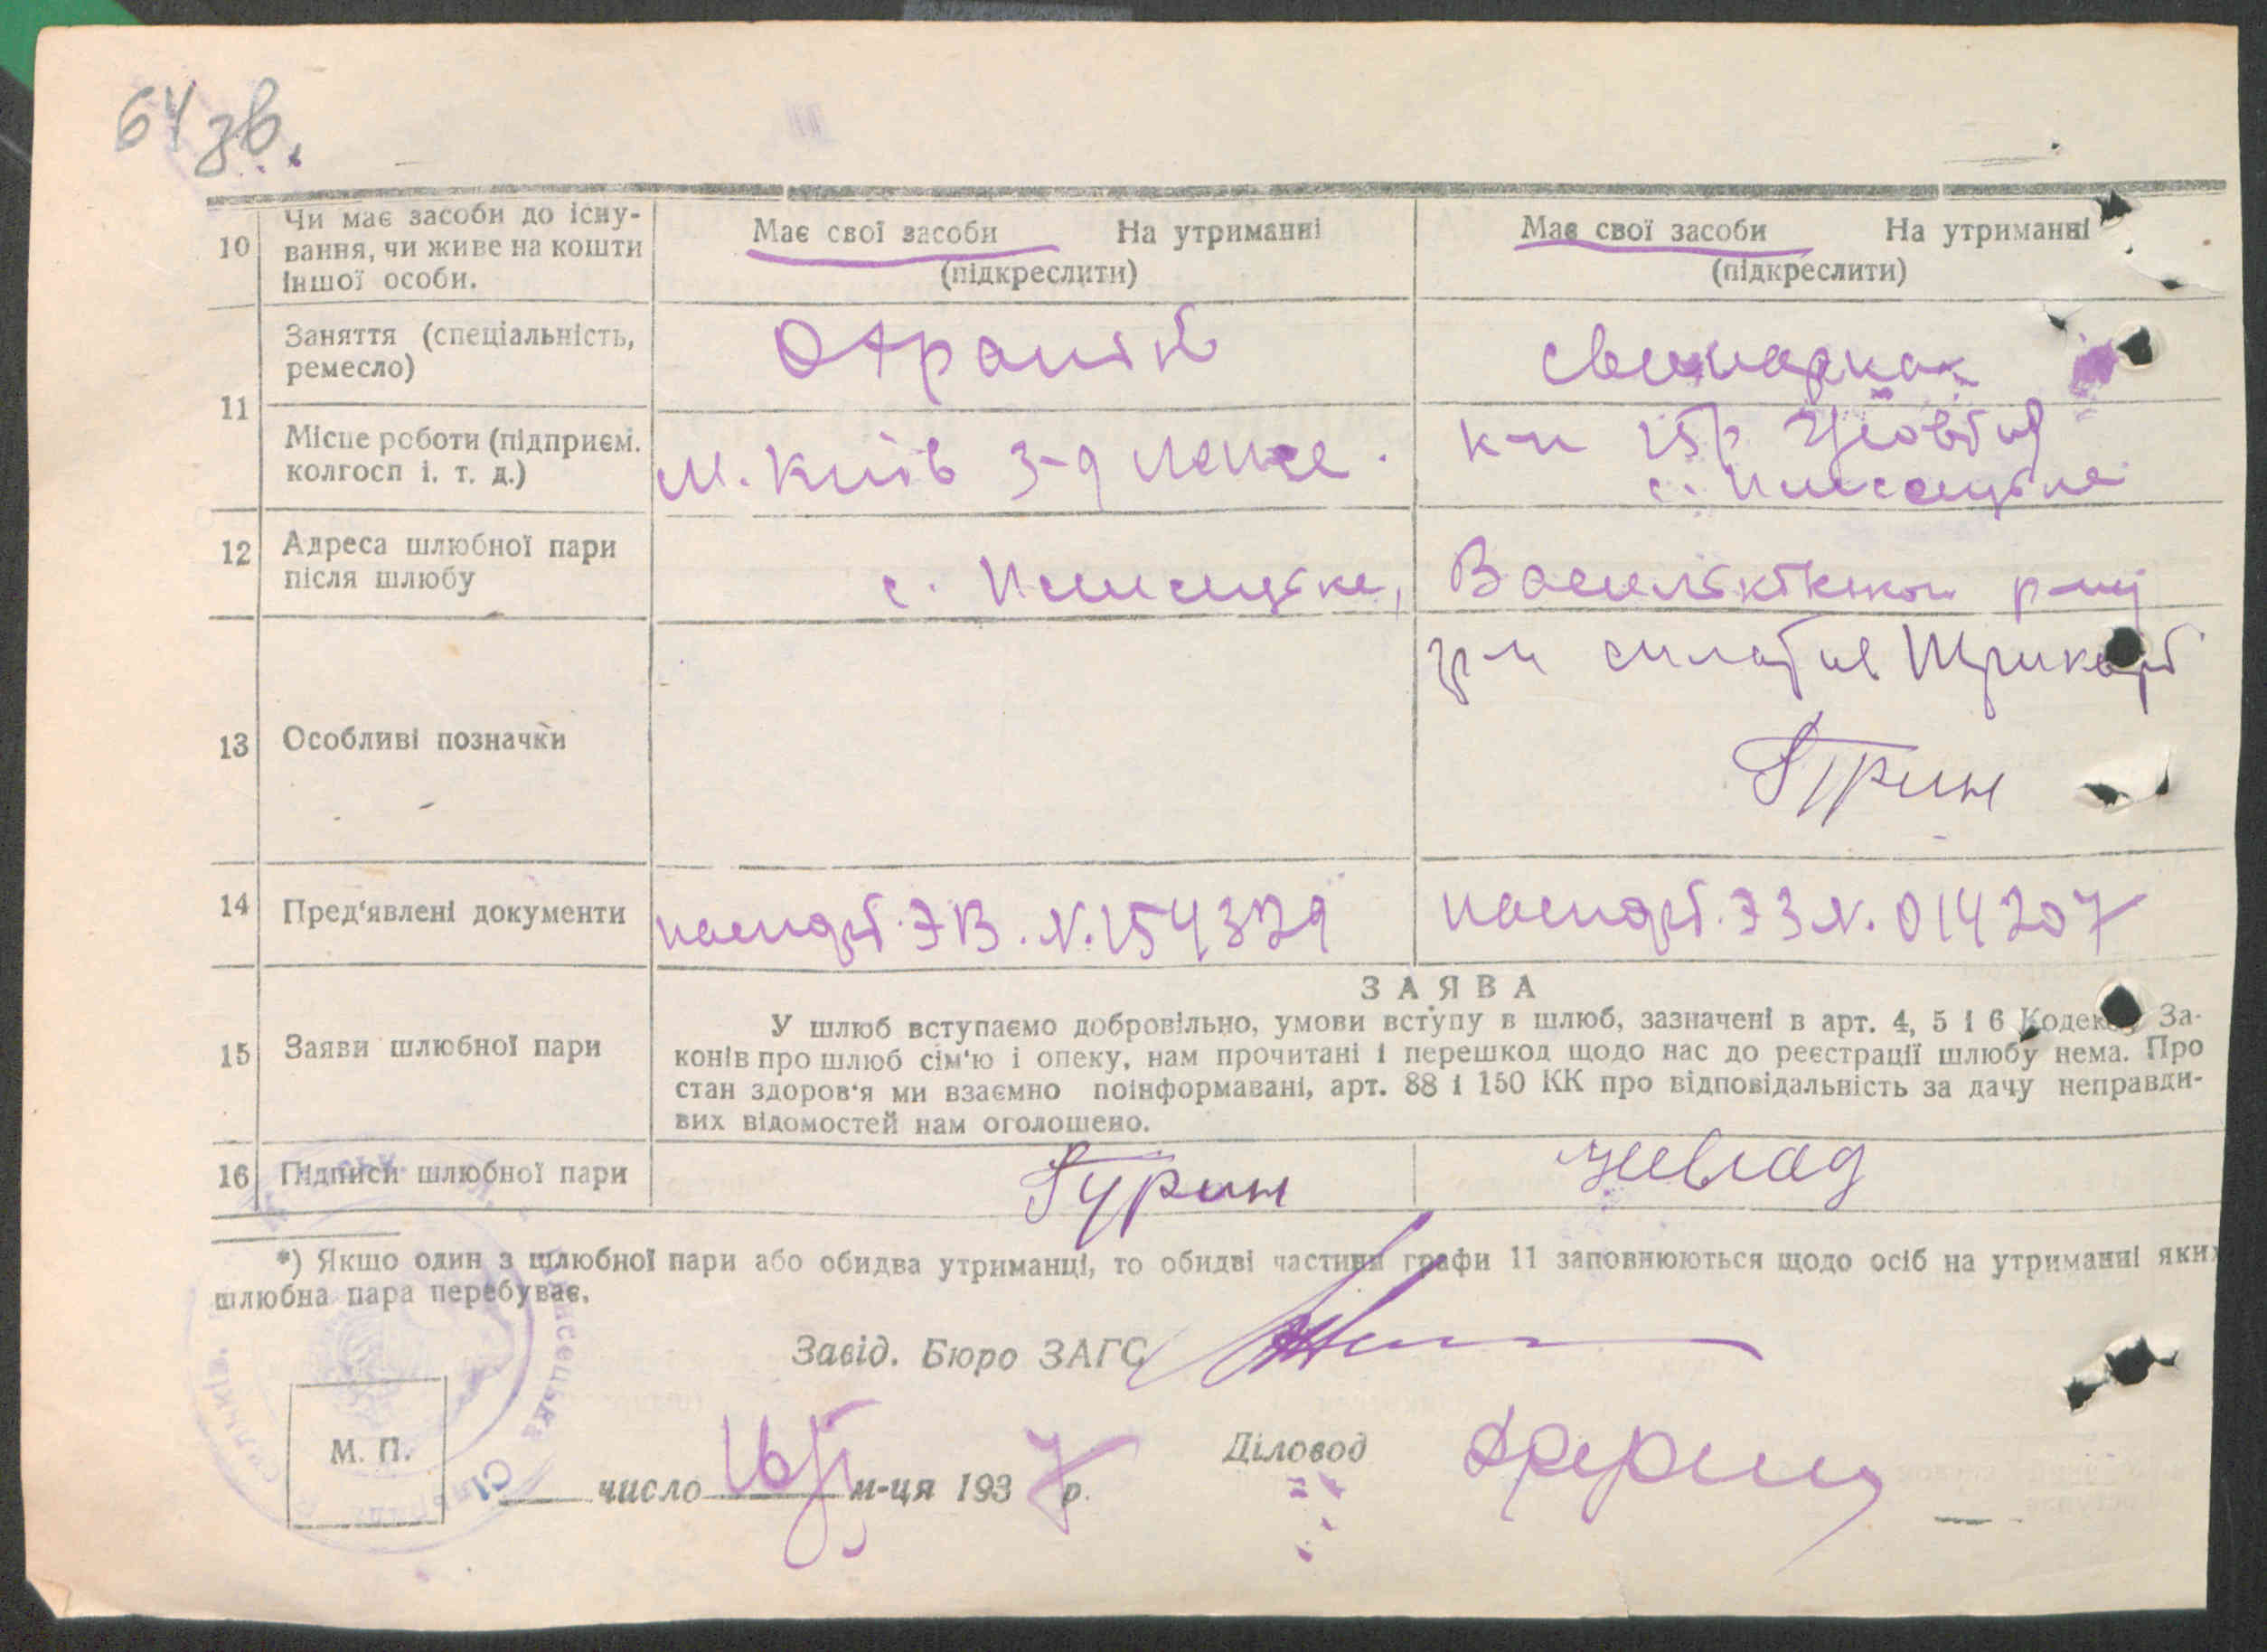 64 зв.
10 Чи має засоби до існу-
вання, чи живе на кошти
іншої особи.
Має свої засоби На утриманні
(підкреслити)
Має свої засоби На утриманні
(підкреслити)
11 Заняття (спеціальність,
ремесло)
свинарка
Місце роботи (підприєм.
колгосп і. т. д.)
м. Київ 3-д
12 Адреса шлюбної пари
після шлюбу
с.
13 Особливі позначки
14 Пред'явлені документи
паспорт. ЭВ. N. 154379
паспорт. ЭЗ N. 014207
15 Заяви шлюбної пари
ЗАЯВА
У шлюб вступаємо добровільно, умови вступу в шлюб, зазначені в арт. 4, 5 і 6 Кодексу За-
конів про шлюб сім'ю і опеку, нам прочитані і перешкод щодо нас до реєстрації шлюбу нема. Про
стан здоров'я ми взаємно поінформавані, арт. 88 і 150 КК про відповідальність за дачу неправди-
вих відомостей нам оголошено.
16 Підписи шлюбної пари
Гурин
*) Якщо один з шлюбної пари або обидва утриманці, то обидві частини графи 11 заповнюються щодо осіб на утриманні яких
шлюбна пара перебуває.
Завід. Бюро ЗАГС
М. П.
число 16/ м-ця 1937 р.
Діловод